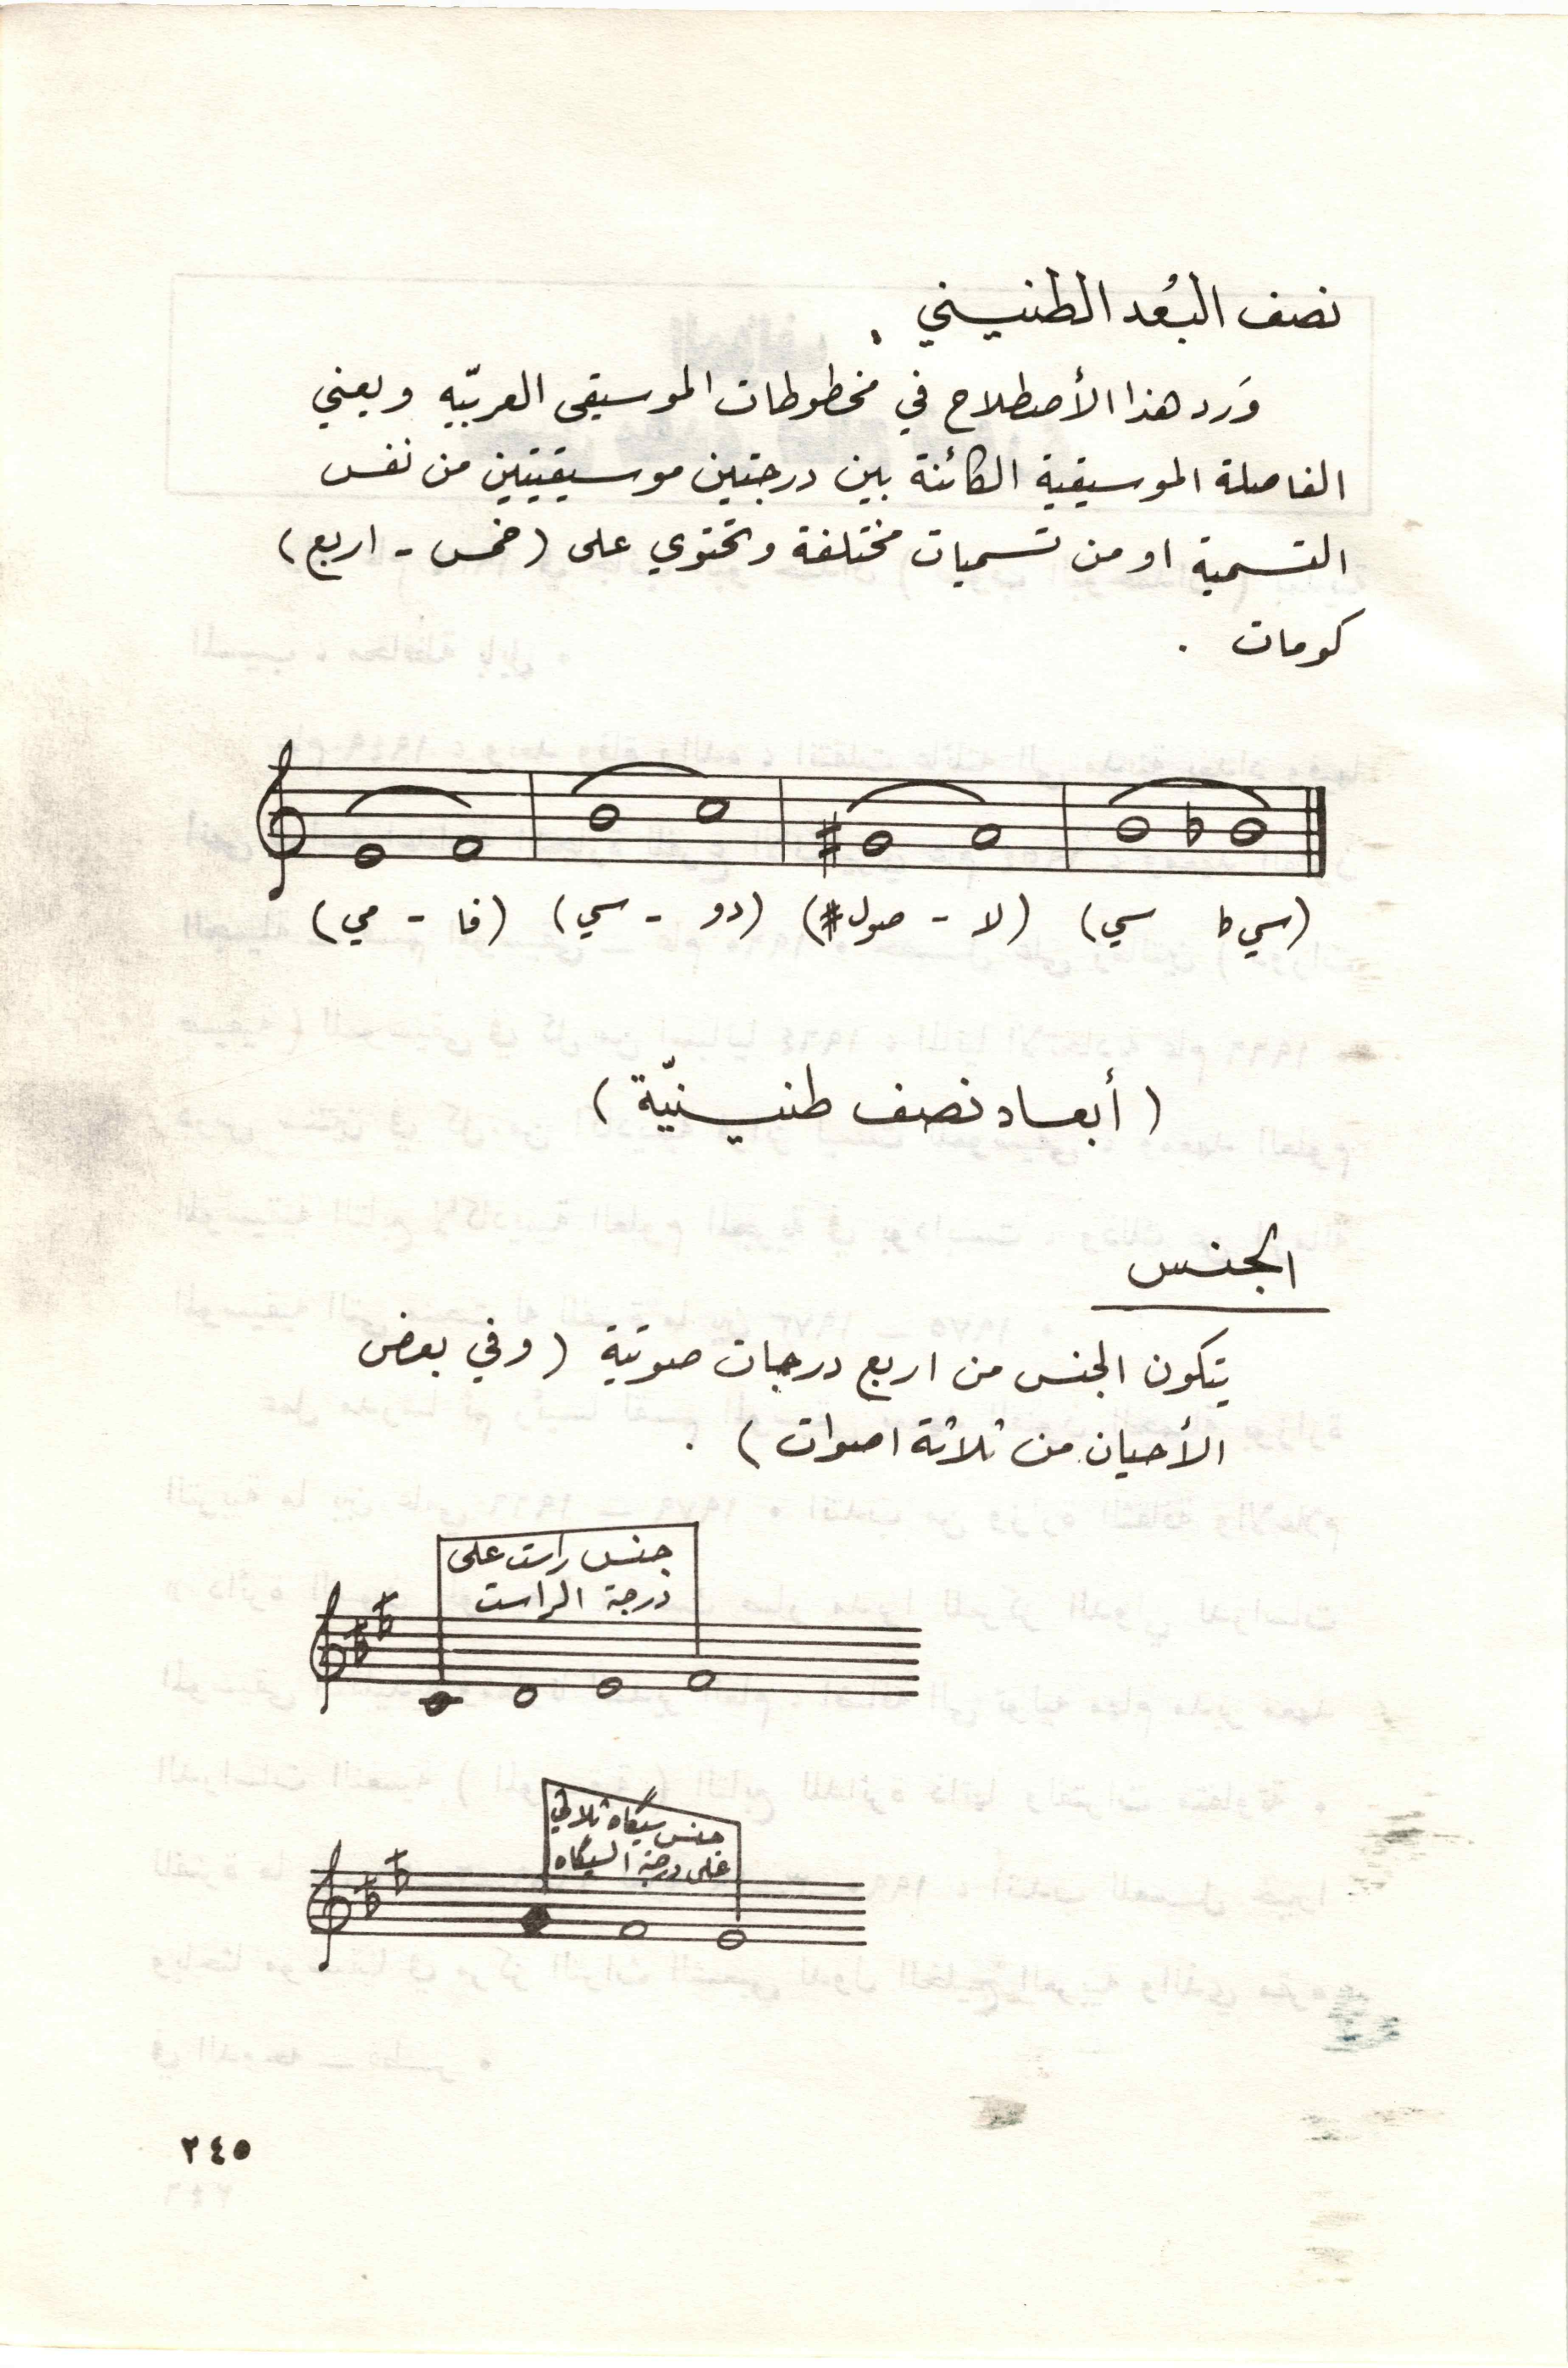 نصف البُعد الطنيني .
وَرد هذا الأصطلاح في مخطوطات الموسيقى العربيّه ويعني
الفاصلة الموسيقية الكائنة بين درجتين موسيقيتين من نفس
التسمية او من تسميات مختلفة وتحتوي على (خمس - اربع)
كومات .
(سي b سي) (لا - صول #) (دو - سي) (فا - مي)
( أبعاد نصف طنينيّة )
الجنس
يتكون الجنس من اربع درجات صوتية ( وفي بعض
الأحيان من ثلاثة اصوات ) .
جنس راست على
درجة الراست
جنس سيگاه ثلاثي
على درجة السيگاه
٢٤٥